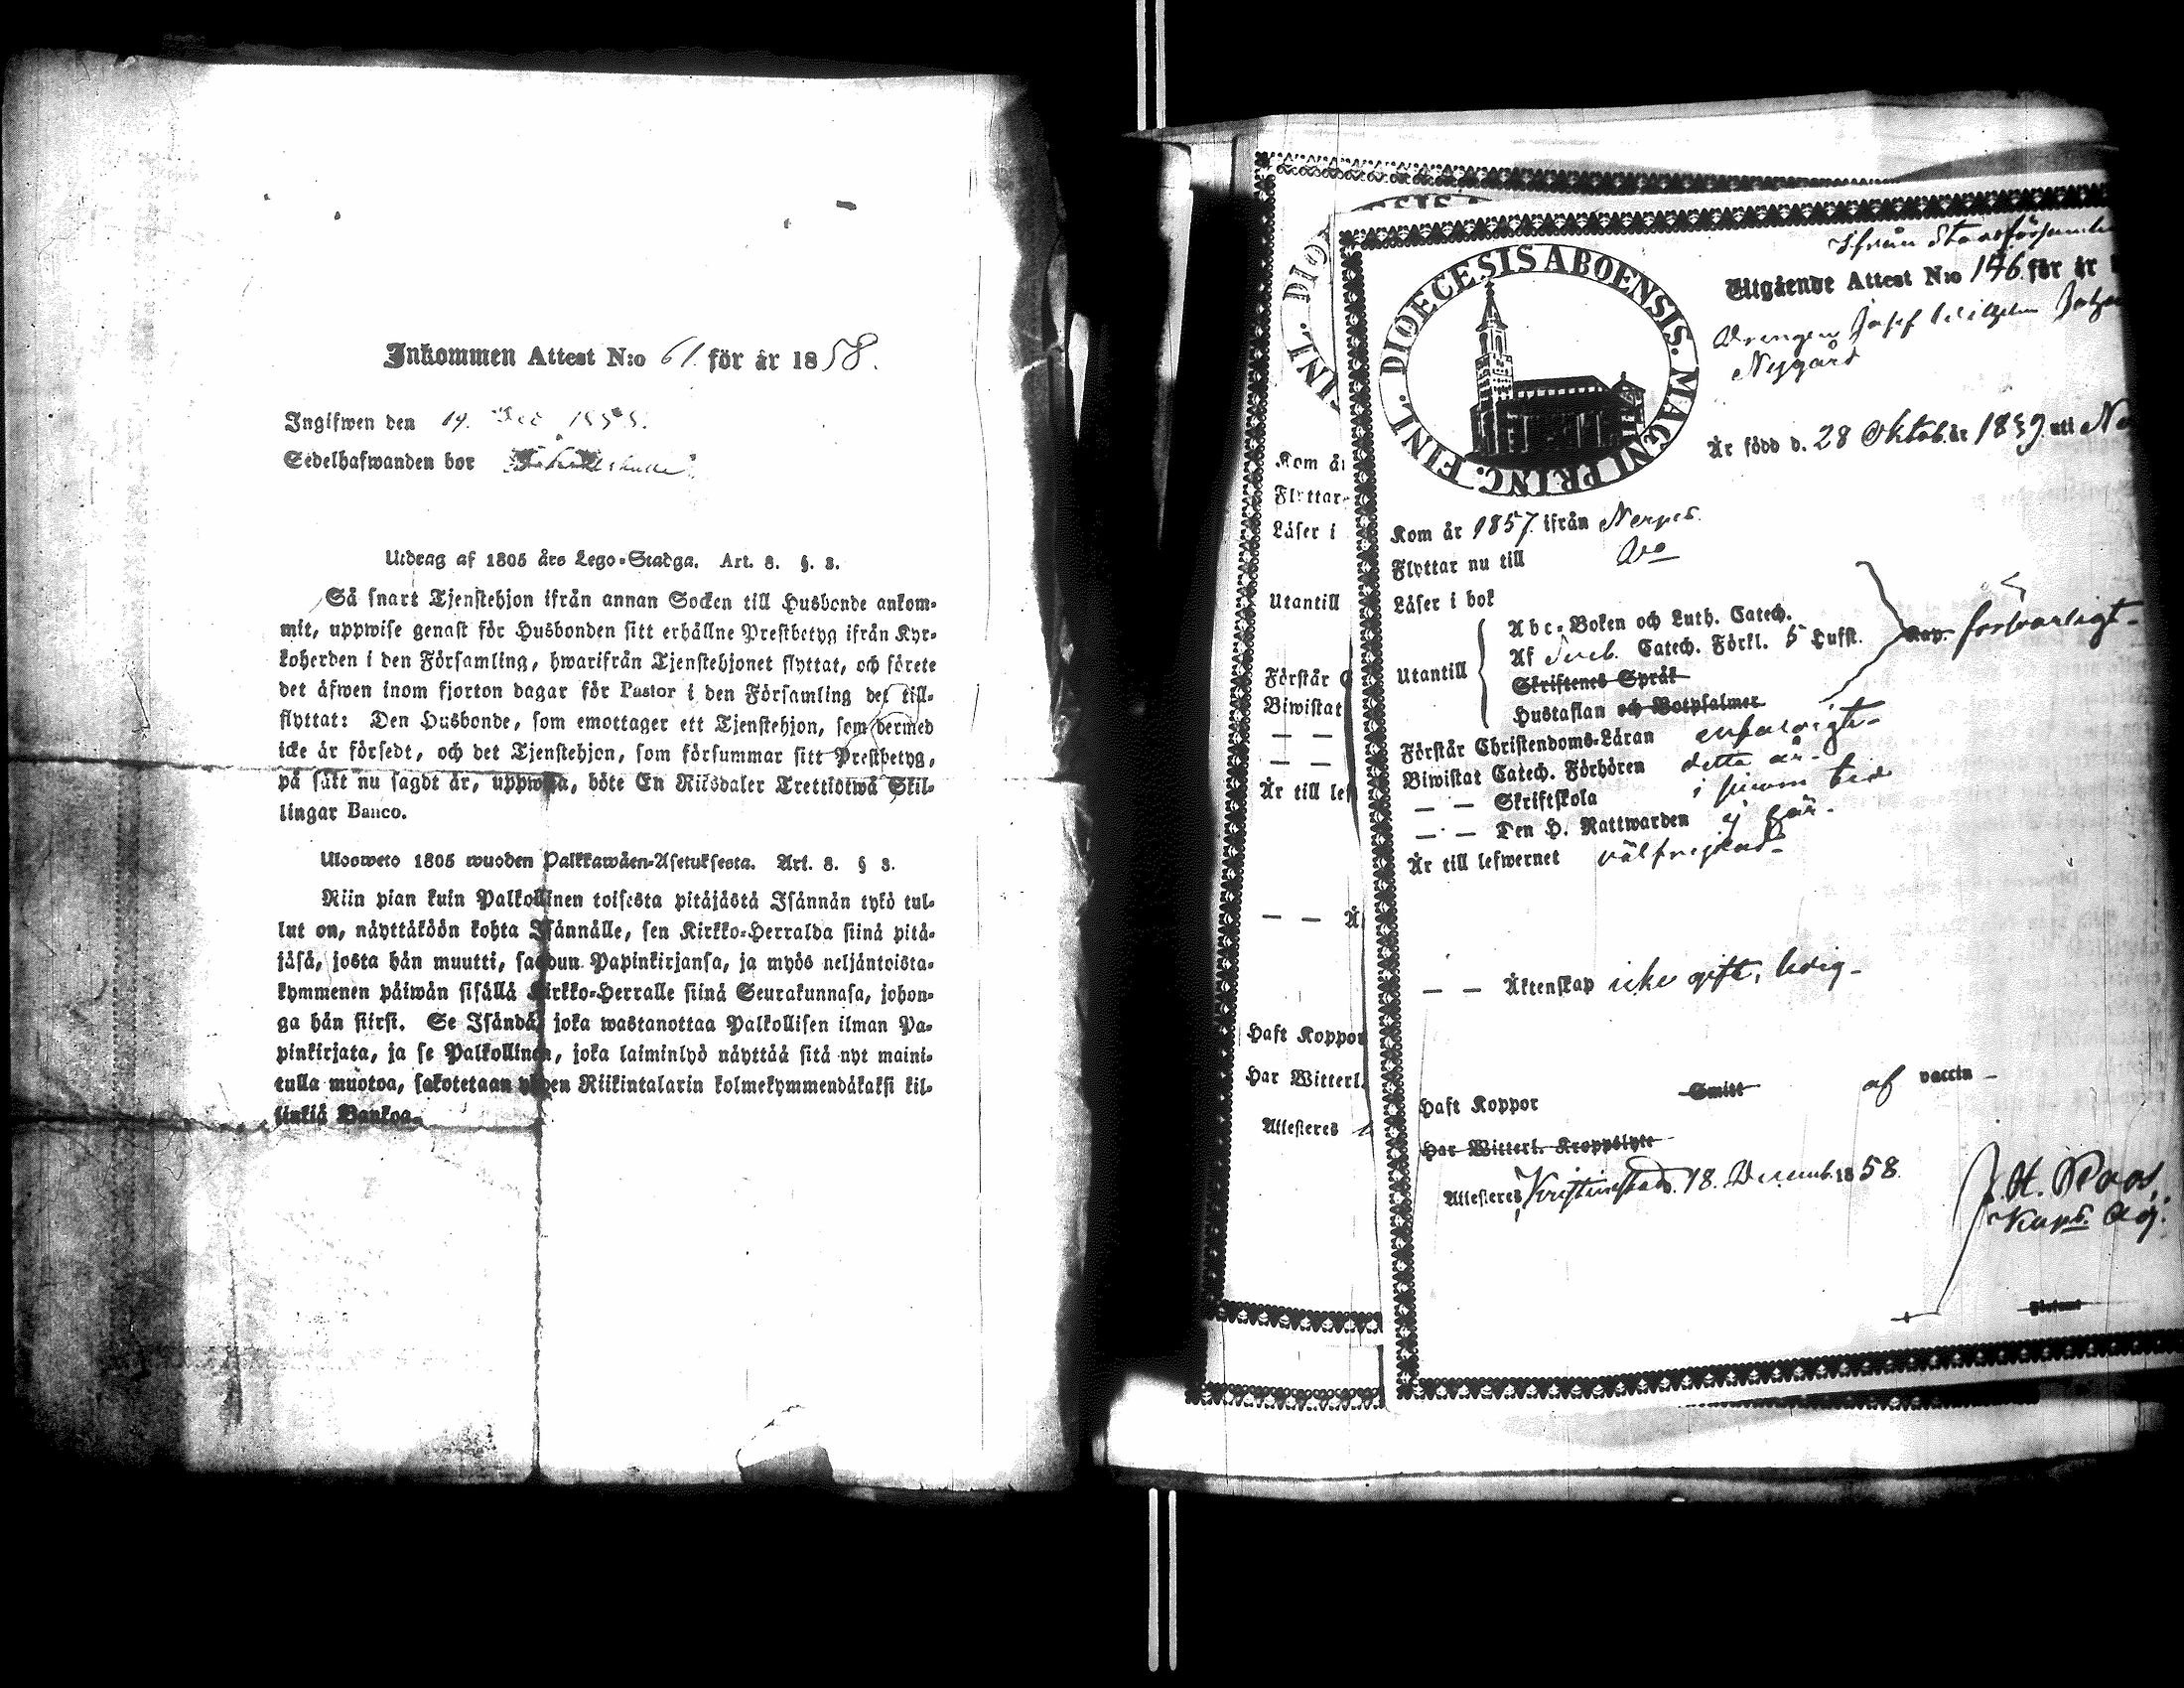 Inkommen Attest N:o 61. för år 1858.
Ingifwen den 19. Dec 1858.
Sedelhafwanden bor
Utdrag af 1805 års Lego-Stadga. Art. 8. §. 3.
Så snart Tjenstehjon ifrån annan Socken till Husbonde ankom-
mit, uppwise genast för Husbonden sitt erhållne Prestbetyg ifrån Kyr-
koherden i den Församling, hwarifrån Tjenstehjonet flyttat, och förete
det äfwen inom fjorton dagar för Pastor i den Församling det till-
flyttat: Den Husbonde, som emottager ett Tjenstehjon, som dermed
icke är försedt, och det Tjenstehjon, som försummar sitt Prestbetyg,
på sätt nu sagdt är, uppwisa, böte En Riksdaler Trettiotwå Skil-
lingar Banco.
Ulosweto 1805 wuoden Palkkawäen-Asetuksesta. Art. 8. § 3.
Niin pian kuin Palkollinen toisesta pitäjästä Isännän tykö tul-
lut on, näyttäköön kohta Isännälle, sen Kirkko-Herralda siinä pitä-
jäsä, josta hän muutti, saadun Papinkirjansa, ja myös neljäntoista-
kymmenen päiwän sisällä Kirkko-Herralle siinä Seurakunnasa, johon-
ga hän siirsi. Se Isändä, joka wastanottaa Palkollisen ilman Pa-
pinkirjata, ja se Palkollinen, joka laiminlyö näyttää sitä nyt maini-
tulla muotoa, sakotetaan yhden Riikintalarin kolmekymmendäkaksi kil-
linkiä Bankoa.
Kom år
Flyttar
Läser i
Utantill
Förstår
Biwistat
— —
— —
Är till lef
— —
Haft Koppor
Har Witterl.
Attesteres
DIOECESIS ABOENSIS. MAGNI PRINC. FINL.
Ifrån Stadsförsaml
Utgående Attest N:o 146. för år
Drengen Josef Wilhelm
Nygård
Är född d. 28 Oktob. år 1839. uti
Kom år 1857. ifrån Nerpes.
Flyttar nu till Do
Läser i bok
Utantill
Abc-Boken och Luth. Catech.
Af Sveb. Catech. Förkl. 5 Hufst.
Skriftenes Språk
Hustaflan och Botpsalmer
försvarligt-
Förstår Christendoms-Läran enfaldigt-
Biwistat Catech. Förhören detta år-
— — Skriftskola i sinom tid
— — Den H. Nattwarden
Är till lefwernet välfrejdad-
— — Äktenskap icke gift, ledig-
Haft Koppor Smitt af vaccin -
Har Witterl. Kroppslyte
Attesteres, Kristinestad d. 18. Decemb. 1858.
J. H. Roos,